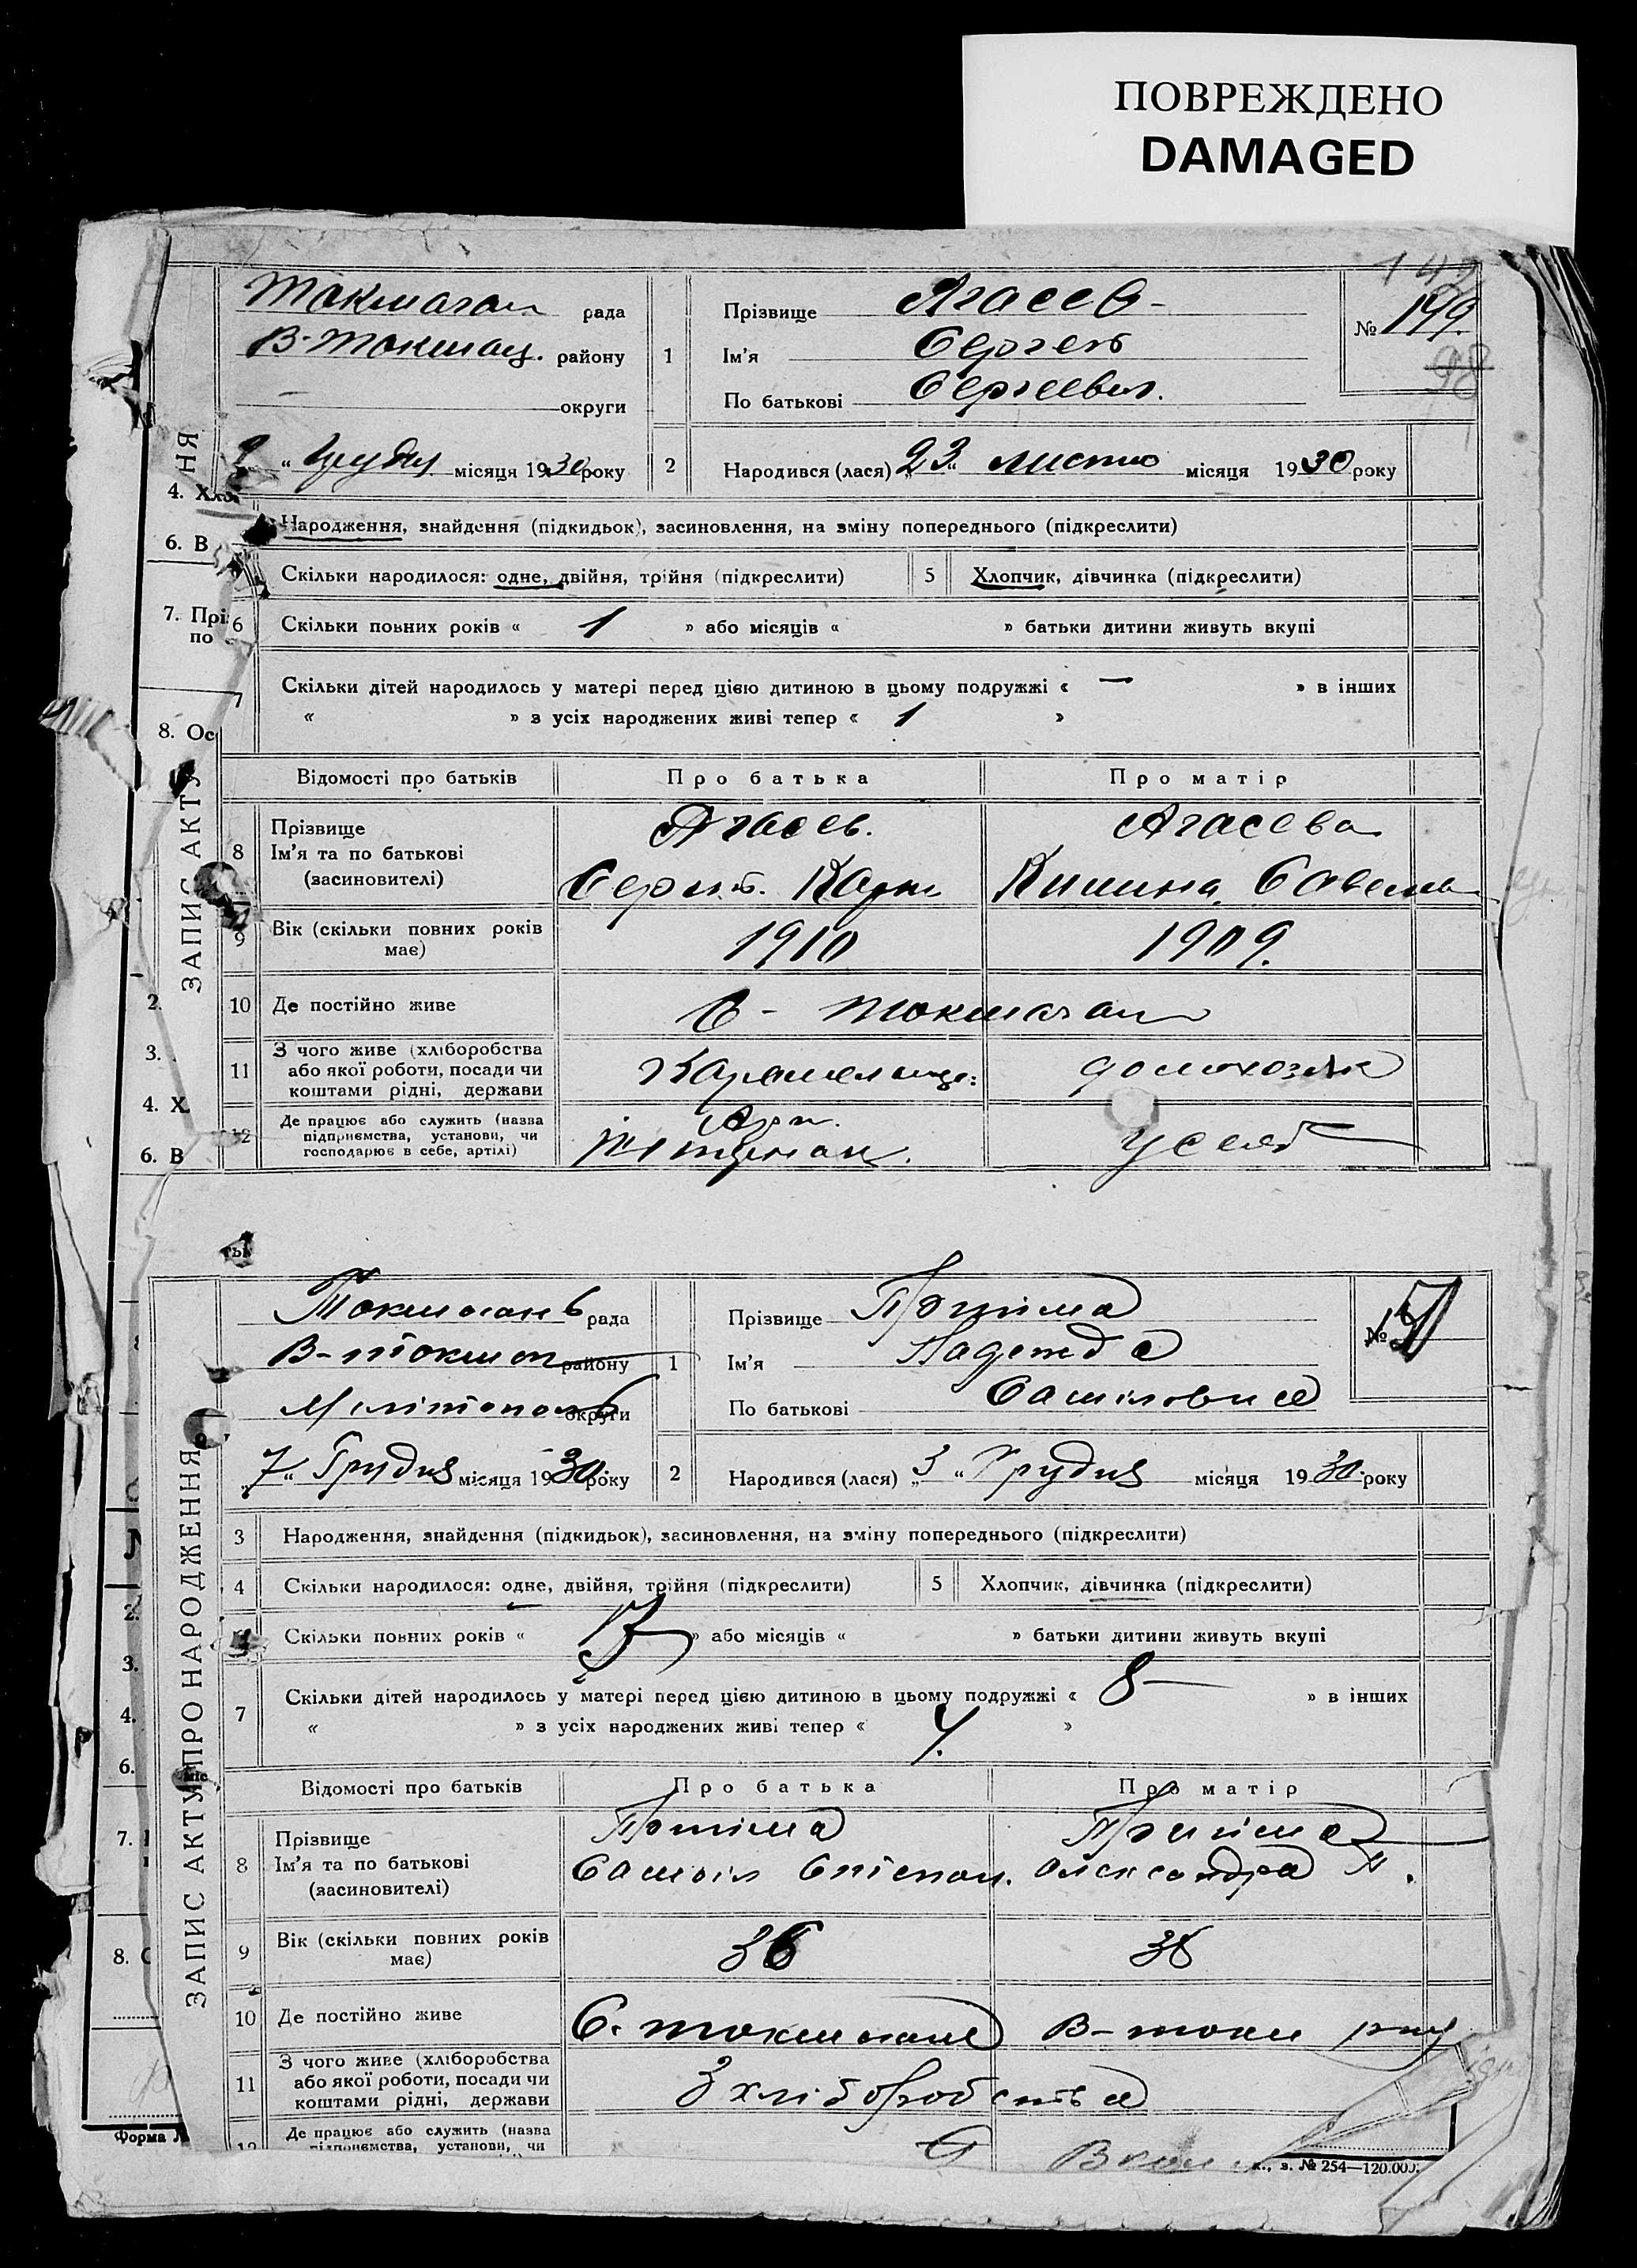 ПОВРЕЖДЕНО
DAMAGED
рада
Прізвище Агасев
№ 149.
98
В-Токмац. району
1
Ім’я Сергей
округи
По батькові Сергеевич.
„ “ Грудня місяця 1930 року
2
Народився (лася) „23“ листо місяця 1930 року
4. Хло
Народження, знайдення (підкидьок), засиновлення, на зміну попереднього (підкреслити)
6. В
Скільки народилося: одне, двійня, трійня (підкреслити)
5
Хлопчик, дівчинка (підкреслити)
7. Прі
по
6
Скільки повних років « 1 » або місяців « » батьки дитини живуть вкупі
7
Скільки дітей народилось у матері перед цією дитиною в цьому подружжі « — » в інших
« » з усіх народжених живі тепер « 1 »
8. Ос
Відомості про батьків
Про батька
Про матір
ЗАПИС АКТУ
НЯ
8
Прізвище
Ім’я та по батькові
(засиновителі)
Агасев.
Агасева
9
Вік (скільки повних років
має)
1910
1909.
2.
10
Де постійно живе
3.
11
З чого живе (хліборобства
або якої роботи, посади чи
коштами рідні, держави
домохозяк
4. Х
12
Де працює або служить (назва
підприємства, установи, чи
господарює в себе, артілі)
у себя
6. В
ть
Токмакань рада
Прізвище Приима
№
В-Токмак району
1
Ім’я Надежда
Мелітополь округи
По батькові Самиловна
„7“ Грудня місяця 1930 року
2
Народився (лася) „3“ Грудня місяця 1930. року
ЗАПИС АКТУ ПРО НАРОДЖЕННЯ
3
Народження, знайдення (підкидьок), засиновлення, на зміну попереднього (підкреслити)
4
Скільки народилося: одне, двійня, трійня (підкреслити)
5
Хлопчик, дівчинка (підкреслити)
2.
Скільки повних років « » або місяців « » батьки дитини живуть вкупі
3.
7
Скільки дітей народилось у матері перед цією дитиною в цьому подружжі « 8 — » в інших
4.
« » з усіх народжених живі тепер « 4. »
6.
Відомості про батьків
Про батька
Про матір
7.
8
Прізвище
Ім’я та по батькові
(засиновителі)
Приима
Самоіл Степан.
Приима
Александра П.
8. О
9
Вік (скільки повних років
має)
36
38
10
Де постійно живе
В-токм
11
З чого живе (хліборобства
або якої роботи, посади чи
коштами рідні, держави
З хліборобства
12
Де працює або служить (назва
підприємства, установи, чи
Форма
з. № 254—120.000.